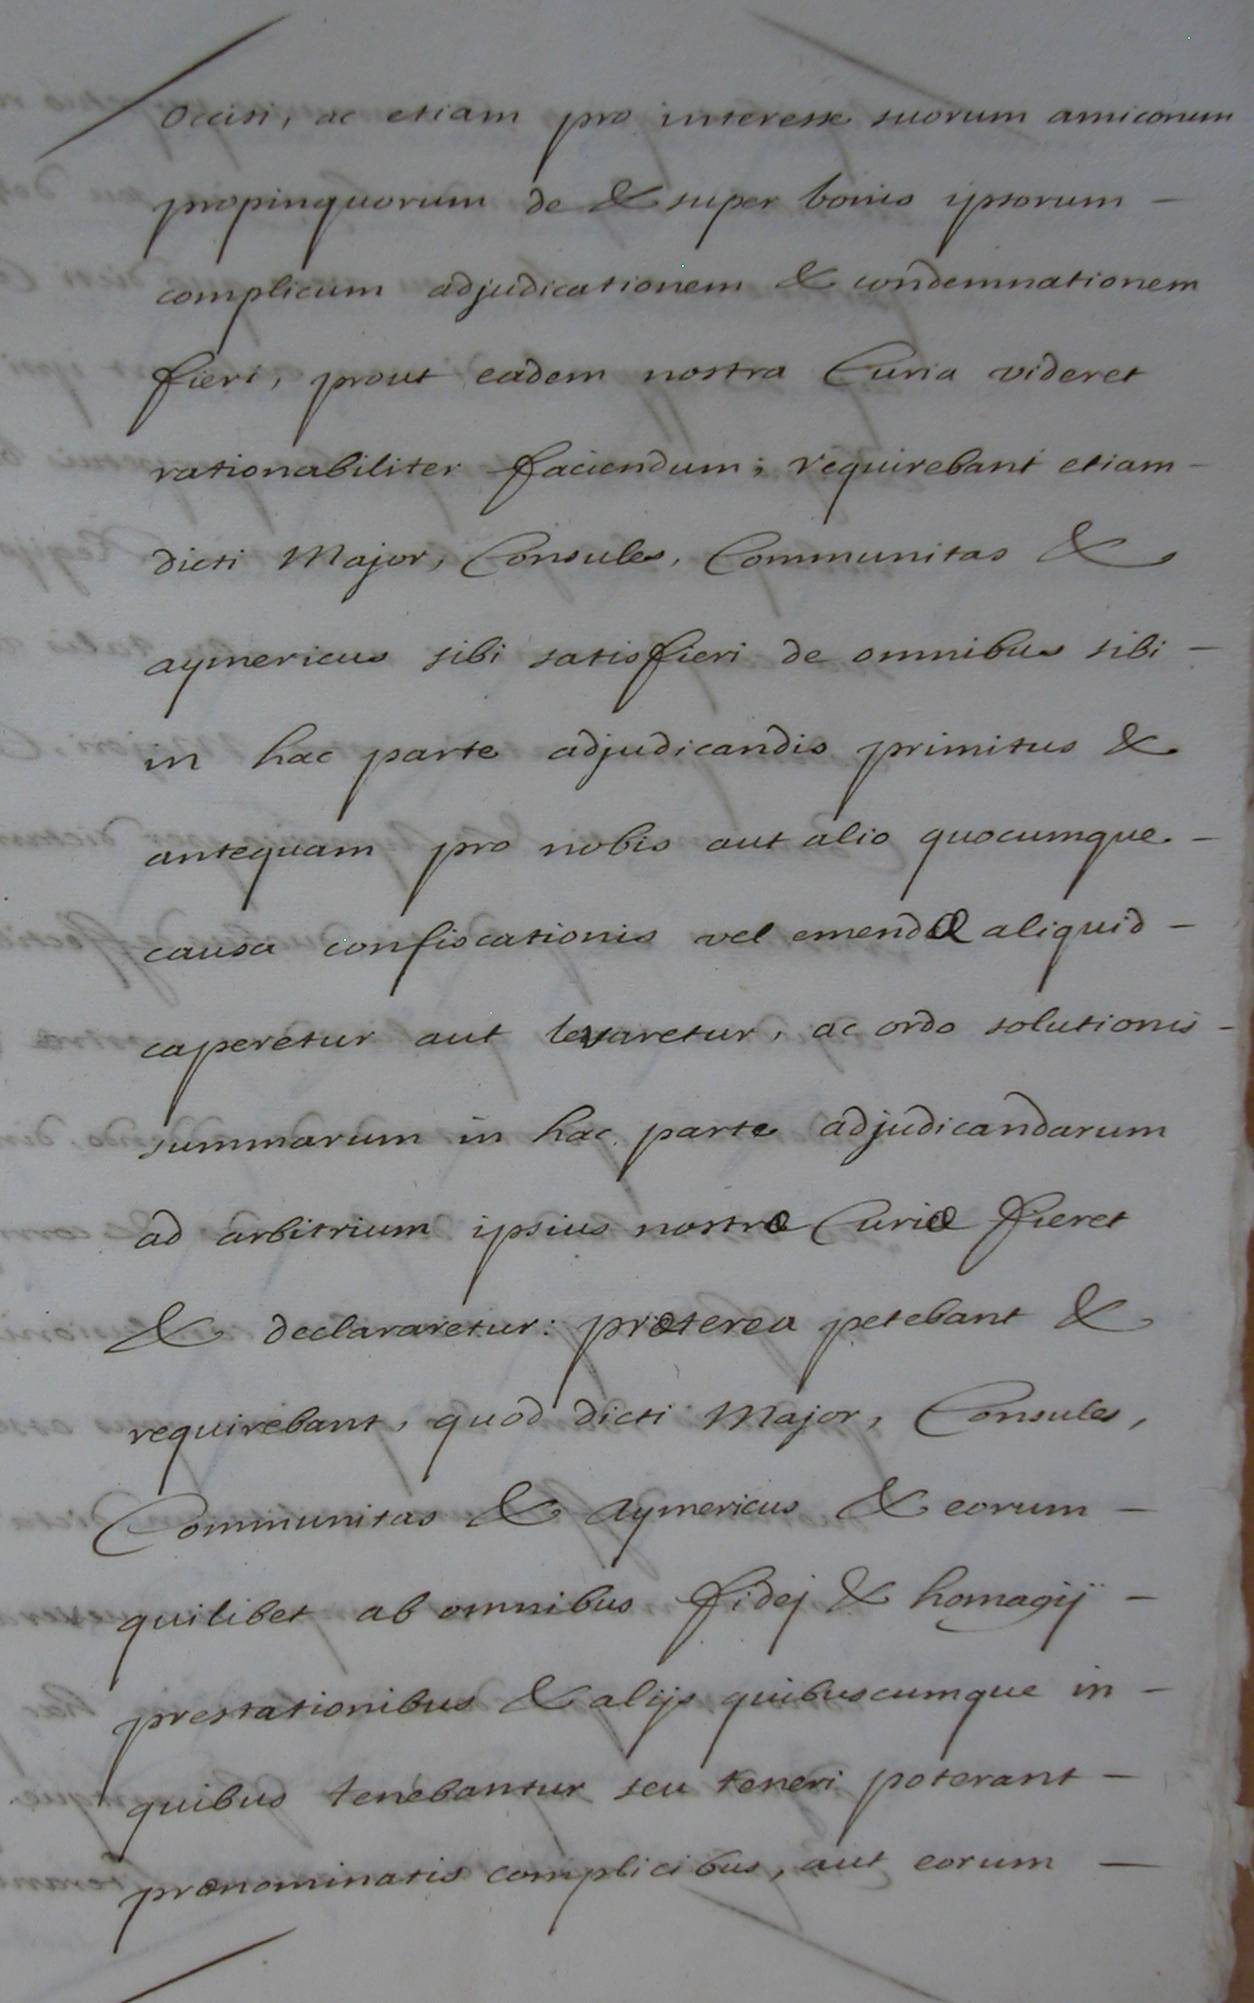 Occisi, ac etiam pro interesse suorum amicorum
propinquorum de & super bonis ipsorum —
complicum adjudicationem & condemnationem
fieri, prout eadem nostra Curia videret
rationabiliter faciendum; requirebant etiam —
dicti Major, Consules, Communitas &
aymericus sibi satisfieri de omnibus sibi —
in hac parte adjudicandis primitus &
antequam pro nobis aut alio quocumque —
causa confiscationis vel emendæ aliquid —
caperetur aut levaretur, ac ordo solutionis —
summarum in hac parte adjudicandarum
ad arbitrium ipsius nostræ Curiæ fieret
& declararetur: præterea petebant &
requirebant, quod dicti Major, Consules,
Communitas & Aymericus & eorum —
quilibet ab omnibus fidej & homagij —
prestationibus & alijs quibuscumque in —
quibus tenebantur seu teneri poterant —
prænominatis complicibus, aut eorum —